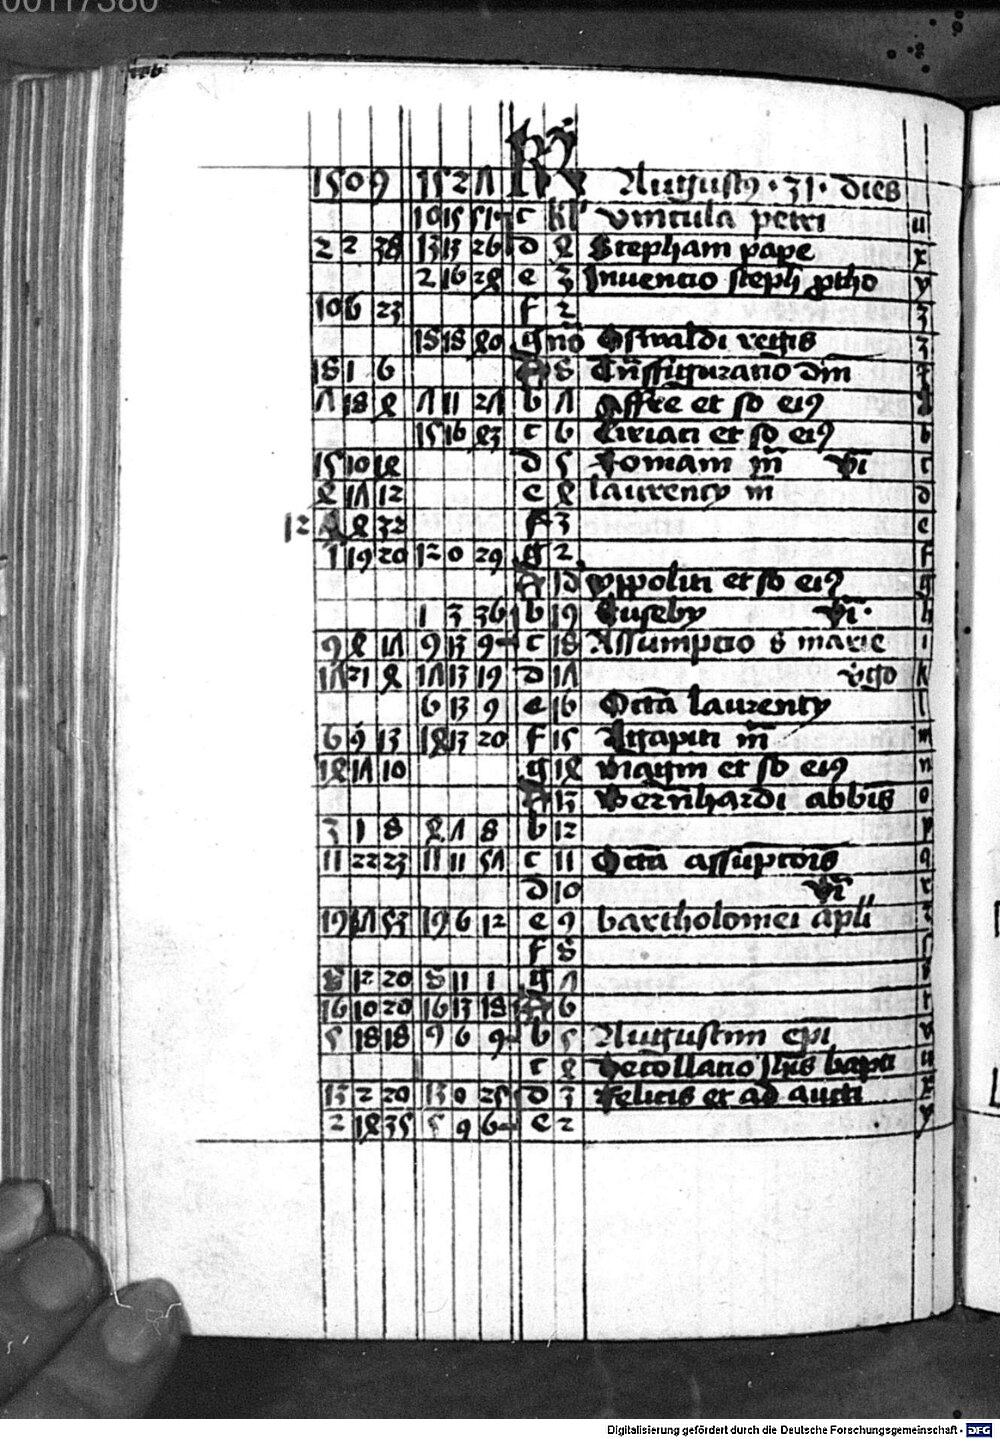 00117380
KL
1509 1521 Augustus · 31 · dies
10 15 51 c kl' vincula petri u
2 2 38 13 13 26 d 4 Stephani pape x
2 16 24 e 3 Inuencio steph prtho y
10 6 23 f 2 z
18 18 40 g no Oswaldi regis 3
18 1 6 8 Tnsfiguratio dni
7 18 4 7 11 27 b 7 Affre et so eius
15 16 43 c 6 Ciriaci et so eius b
15 10 14 d 5 Romani m vi c
4 17 12 e 4 laurency m d
12 4 32 f 3 e
1 19 20 12 0 29 g 2 f
id yppoliti et so eius g
1 3 36 b 19 Euseby vi h
9 4 17 9 13 9 c 18 Assumpcio s marie i
17 21 4 17 13 19 d 17 virgo k
6 13 9 e 16 Octa laurency l
6 9 13 14 13 20 f 15 Agapiti m m
14 17 10 g 14 Magni et so eius n
13 Bernhardi abbis o
3 1 8 4 7 8 b 12 p
11 22 23 11 11 57 c 11 Octa assupcois q
d 10 vi r
19 17 53 19 6 12 e 9 bartholomei apli
f 8 s
8 12 20 8 11 1 g 7
16 10 20 16 13 18 6 t
5 18 18 9 6 9 b 5 Augustini epi v
c 4 Decollatio Jhis bapti u
13 2 20 13 0 25 d 3 Felicis et ad aucti x
2 14 35 5 9 6 e 2 y
Digitalisierung gefördert durch die Deutsche Forschungsgemeinschaft - DFG